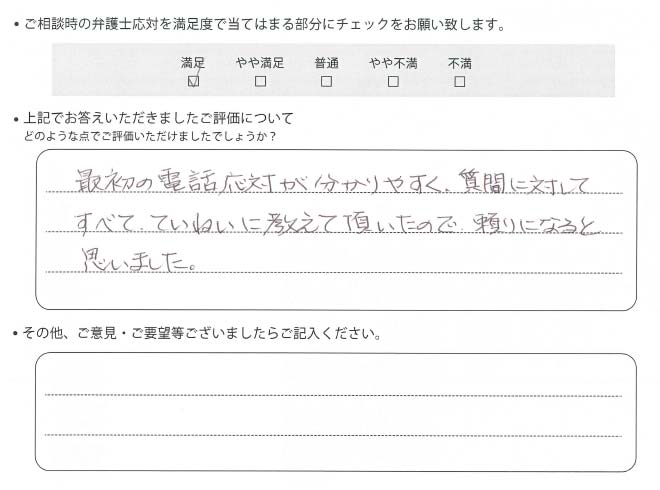 • ご相談時の弁護士応対を満足度で当てはまる部分にチェックをお願い致します。
満足 やや満足 普通 やや不満 不満
☑ □ □ □ □
• 上記でお答えいただきましたご評価について
どのような点でご評価いただけましたでしょうか？
最初の電話応対が分かりやすく、質問に対して
すべて、ていねいに教えて頂いたので、頼りになると
思いました。
• その他、ご意見・ご要望等ございましたらご記入ください。